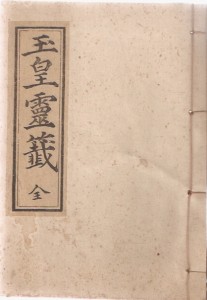 玉皇靈籤
全